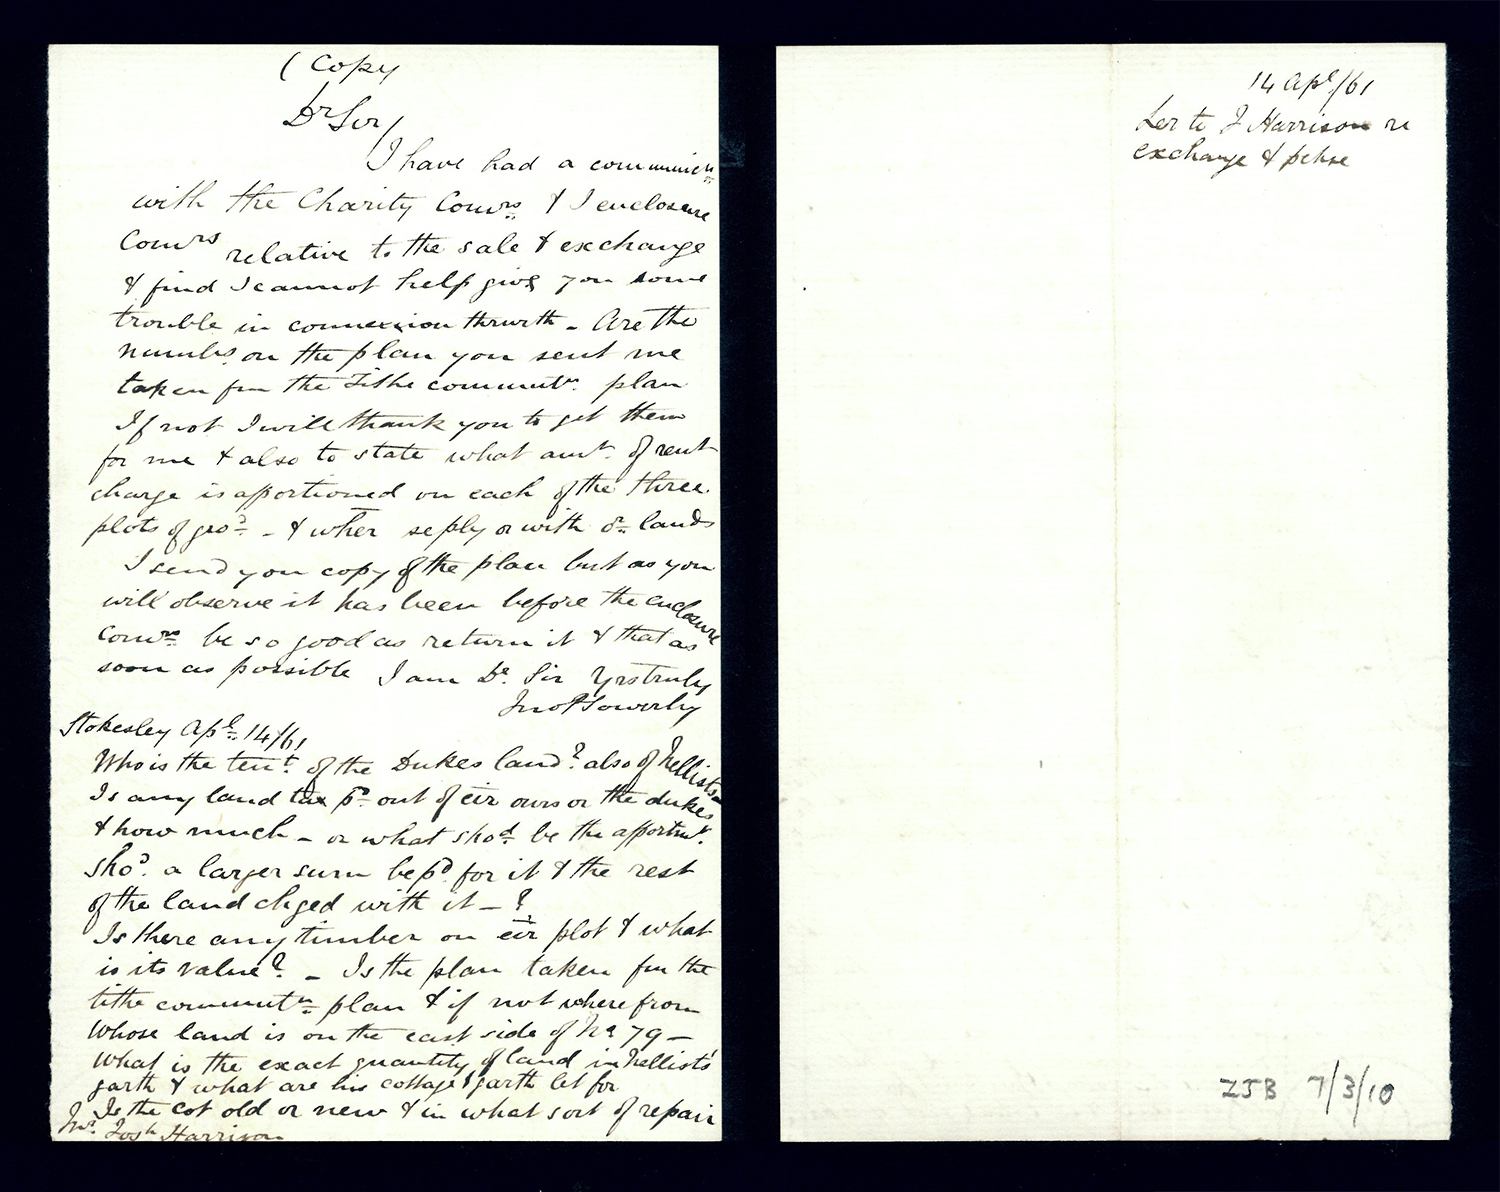 ( Copy
Dr Sir/
I have had a communicn
with the Charity Comrs & Inclosure
Comrs relative to the sale & exchange
& find I cannot help givg you some
trouble in connexion thrwith - Are the
numbs on the plan you sent me
taken fm the Tithe commutn plan
If not I will thank you to get them
for me & also to state what amt. of rent
charge is apportioned on each of the three
plots of grod. - & wher seply or with or lands
I send you copy of the plan but as you
will observe it has been before the enclosure
Comrs be so good as return it & that as
soon as possible I am Dr Sir Yrs truly
Jno P Sowerby
Stokesley Apl. 14/61
Who is the tent. of the Dukes land? also of Nellists
Is any land tax pd. out of eir ours or the dukes
& how much - or what shod. be the apportmt.
shod. a larger sum be pd for it & the rest
of the land chged with it - ?
Is there any timber on eir plot & what
is its value? - Is the plan taken fm the
tithe commutn plan & if not where from
Whose land is on the east side of No 79 -
What is the exact quantity of land in Nellists'
garth & what are his cottage & garth let for
Is the cot old or new & in what sort of repair
Mr. Josh Harrison
14 Apl/61
Ler to J Harrison re
exchange & pchse
ZJB 7/3/10